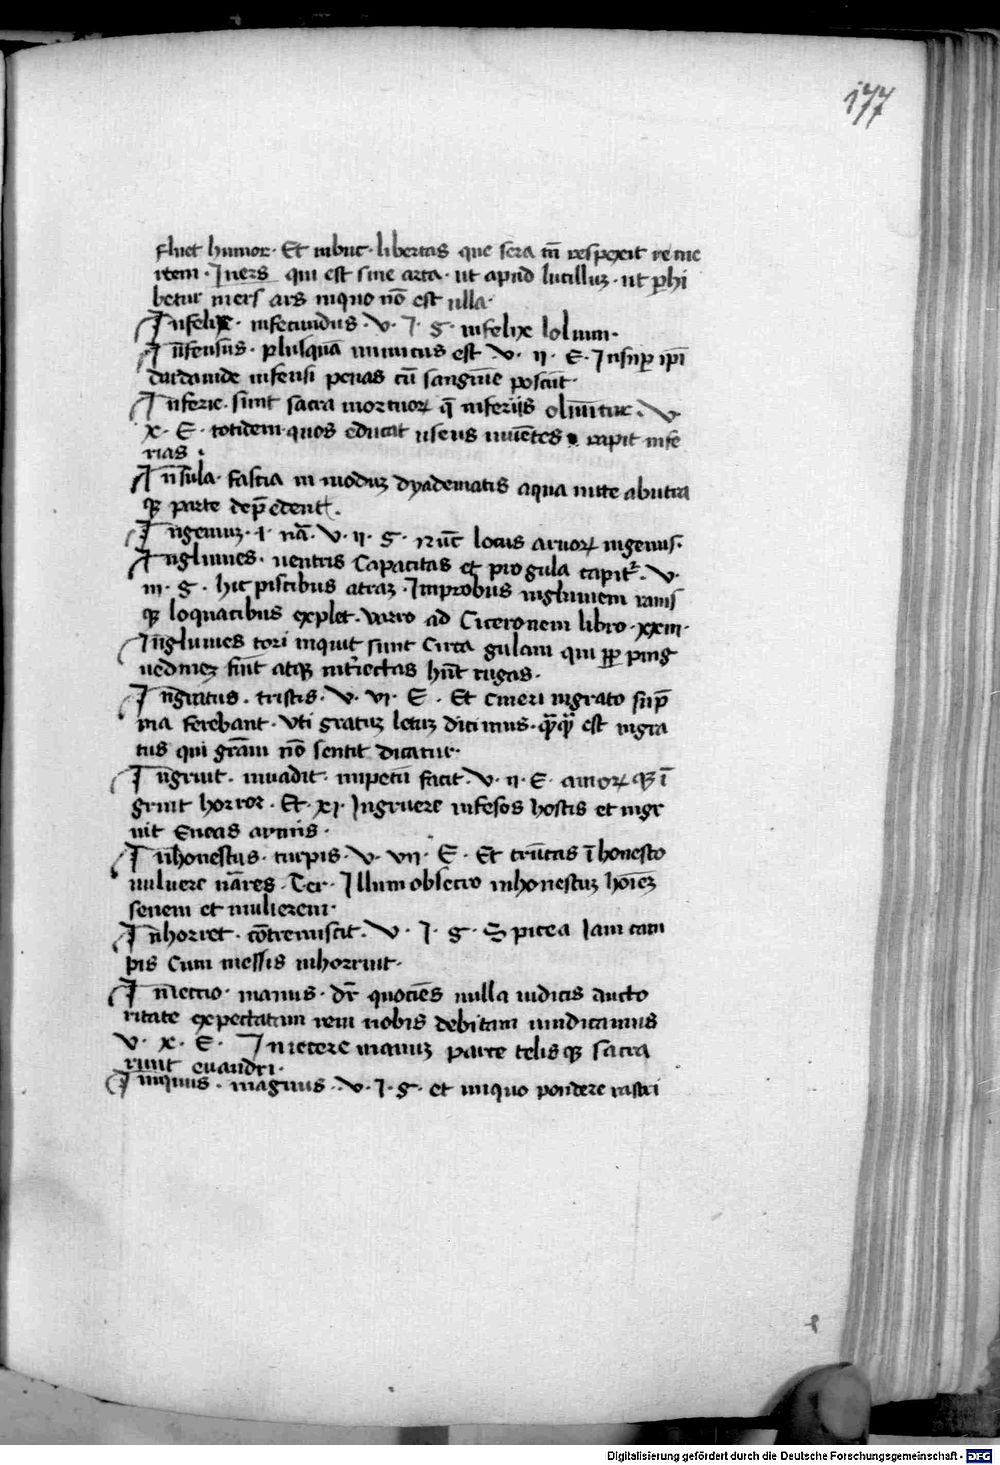 177
fluet humor · Et in buc · libertas que sera tn̄ respexit in me
rtem · Iners qui est sine arta · ut apud lucilluȝ · ut ꝑhi
betur iners ars in quo nō est ulla ·
Infelix · infecundus · V · I · G · infelix lolium ·
Infensus · plusquā inimicus est V · ii · E · Insuꝑ ip̄i
dardanide infensi penas cū sanguīe poscūt ·
Inferie · sunt sacra mortuoꝝ q̄ inferiis
X · E · totidem quos educat ufens uiuētes rapit infe
rias ·
Infula · fascia in moduȝ dyadematis aqua uitte ab utra
qȝ parte
Ingeniuȝ · i · nā · V · ii · G · Nūc locus aruoꝝ ingeniis ·
Ingluuies · uentris capacitas et pro gula capit᷑ · V ·
iii · G · hic piscibus atraȝ · Improbus ingluuiem ranis
qȝ loquacibus explet · Varro ad Ciceronem libro · xxiii ·
Ingluuies tori inquit sunt circa gulam qui ꝓꝑ ping
uedineȝ fiūt atqȝ int̄iectas hn̄t rugas ·
Ingratus · tristis · V · vi · E · Et cineri ingrato sup̄
ma ferebant · Uti gratuȝ letuȝ dicimus · est ingra
tus qui grām nō sentit dicatur ·
Ingruit · inuadit · impetū facit · V · ii · E · armoꝝ qȝ ī
gruit horror · Et · xi · Ingruere infesos hostis et ingr
uit Eneas armis ·
Inhonestus · turpis · V · vii · E · Et trūcas īhonesto
uulnere nāres · Ter · Illum obsecro inhonestuȝ hoīeȝ
senem et mulierem ·
Inhorret · cōtremiscit · V · I · G · Spicea iam cam
pis cum messis inhorruit ·
Iniectio · manus · dr̄ quociēs nulla iudicis aucto
ritate expectatam rem nobis debitam uindicamus
V · X · E · Inicere manuȝ parce telisqȝ sacra
runt euandri ·
Iniquus · magnus · V · I · G · et iniquo pondere rastri
Digitalisierung gefördert durch die Deutsche Forschungsgemeinschaft - DFG